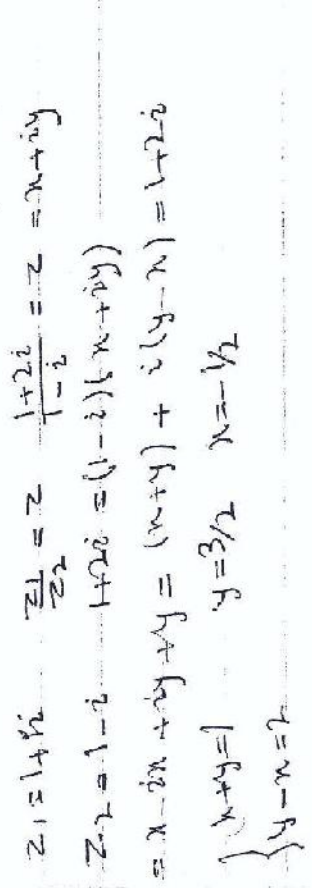 z1 = 1+2i   z1/z2 = z   (1+2i)/(1-i) = z = x+iy
z2 = 1-i   1+2i = (1-i)(x+iy)
= x - ix + iy + y = (x+y) + i(y-x) = 1+2i
{ x+y=1   y=3/2   x=-1/2
y-x=2